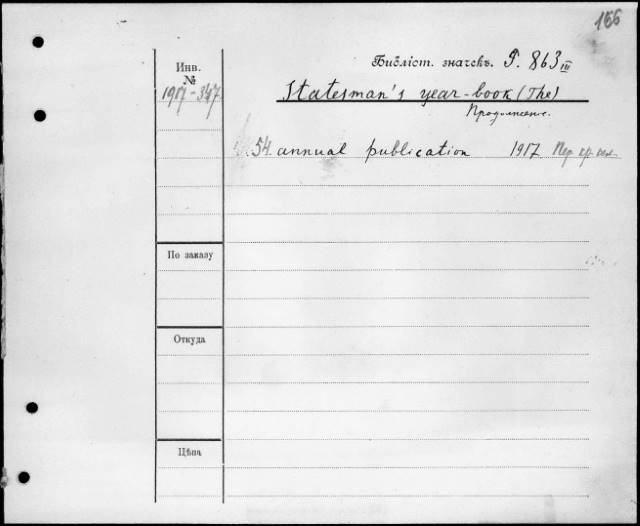 166
Библіот. значекъ. P. 863 III
Инв.
№
1917-347
Statesman's year-book (The)
Продолжение.
54 annual publication 1917 Пер.
По заказу
Откуда
Цѣна